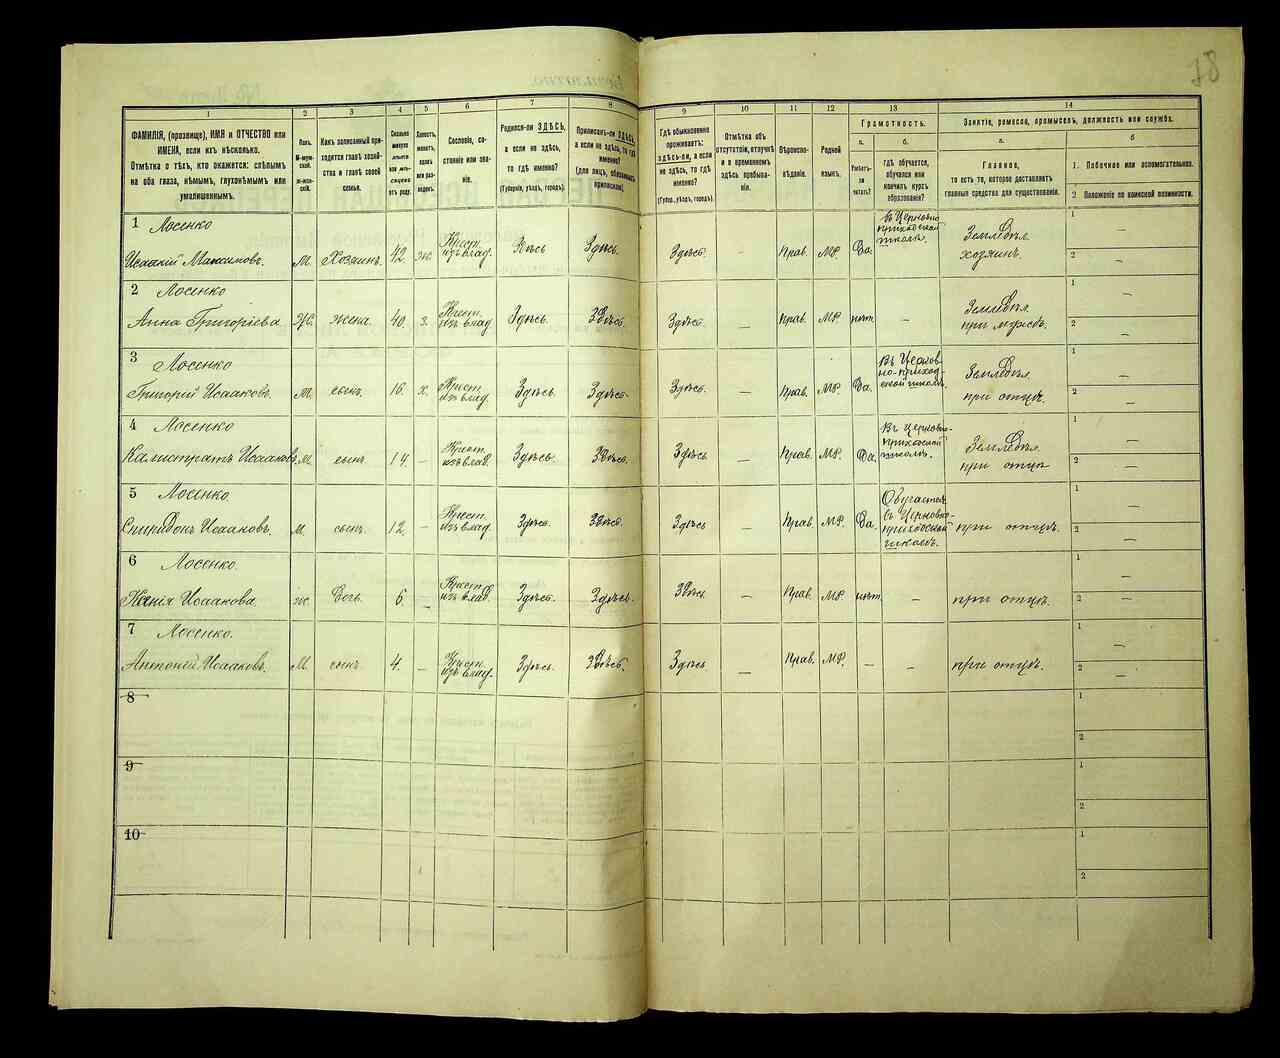 78
1
2
3
4
5
6
7
8
9
10
11
12
13
14
ФАМИЛІЯ, (прозвище), ИМЯ и ОТЧЕСТВО или
ИМЕНА, если ихъ нѣсколько.
Отмѣтка о тѣхъ, кто окажется: слѣпымъ
на оба глаза, нѣмымъ, глухонѣмымъ или
умалишеннымъ.
Полъ.
М-муж-
ской.
ж-жен-
скій.
Какъ записанный при-
ходится главѣ хозяй-
ства и главѣ своей
семьи.
Сколько
минуло
лѣтъ
или мѣ-
сяцевъ
отъ роду.
Сословіе, со-
стояніе или зва-
ніе.
Родился-ли ЗДѢСЬ,
а если не здѣсь,
то гдѣ именно?
(Губернія, уѣздъ, городъ).
Приписанъ-ли ЗДѢСЬ,
а если не здѣсь, то гдѣ
именно?
(для лицъ, обязанныхъ
припискою).
Гдѣ обыкновенно
проживаетъ:
здѣсь-ли, а если
не здѣсь, то гдѣ
именно?
(Губер., уѣздъ, городъ).
Отмѣтка объ
отсутствіи, отлучкѣ
и о временномъ
здѣсь пребыва-
ніи.
Вѣроиспо-
вѣданіе.
Родной
языкъ.
Грамотность.
а.
б.
Умѣетъ-
ли
читать?
гдѣ обучается,
обучался или
кончилъ курсъ
образованія?
Занятіе, ремесло, промыселъ, должность или служба.
а.
б
Главное,
то есть то, которое доставляетъ
главныя средства для существованія.
1. Побочное или вспомогательное.
2 Положеніе по воинской повинности.
1 Лосенко
Исаакій Максимовъ. М. Хозяинъ. 42. ж. Крест. изъ влад. Здѣсь Здѣсь. Здѣсь. — Прав. МР. Да. въ Церковно приходской школѣ. Земледѣл. хозяинъ. 1 — 2 —
2 Лосенко
Анна Григоріева Ж. жена. 40. з. Крест. изъ влад Здѣсь. Здѣсь. Здѣсь. — Прав. МР. нѣтъ — Земледѣл. при мужѣ. 1 — 2 —
3 Лосенко
Григорій Исааковъ. М. сынъ. 16. х. Крест. изъ влад. Здѣсь. Здѣсь. Здѣсь. — Прав. МР. Да. Въ Церков- но-приход- ской школѣ. Земледѣл. при отцѣ. 1 — 2 —
4 Лосенко
Калистратъ Исааковъ. М. сынъ. 14. — Крест. изъ влад. Здѣсь. Здѣсь. Здѣсь. — Прав. МР. Да. Въ Церковно- приходской школѣ. Земледѣл. при отцѣ 1 — 2 —
5 Лосенко
Спиридонъ Исааковъ. М. сынъ. 12. — Крест. изъ влад. Здѣсь. Здѣсь. Здѣсь — Прав. МР. Да. Обучается въ Церковно- приходской школѣ. при отцѣ. 1 — 2 —
6 Лосенко.
Ксенія Исаакова. ж. Дочь. 6. — Крест. изъ влад. Здѣсь. Здѣсь. Здѣсь. — Прав. МР. нѣтъ — при отцѣ. 1 — 2 —
7 Лосенко.
Антоній Исааковъ. М. сынъ. 4. — Крест. изъ влад. Здѣсь. Здѣсь. Здѣсь — Прав. МР. — — при отцѣ. 1 — 2 —
8 1 2
9 1 2
10 1 2